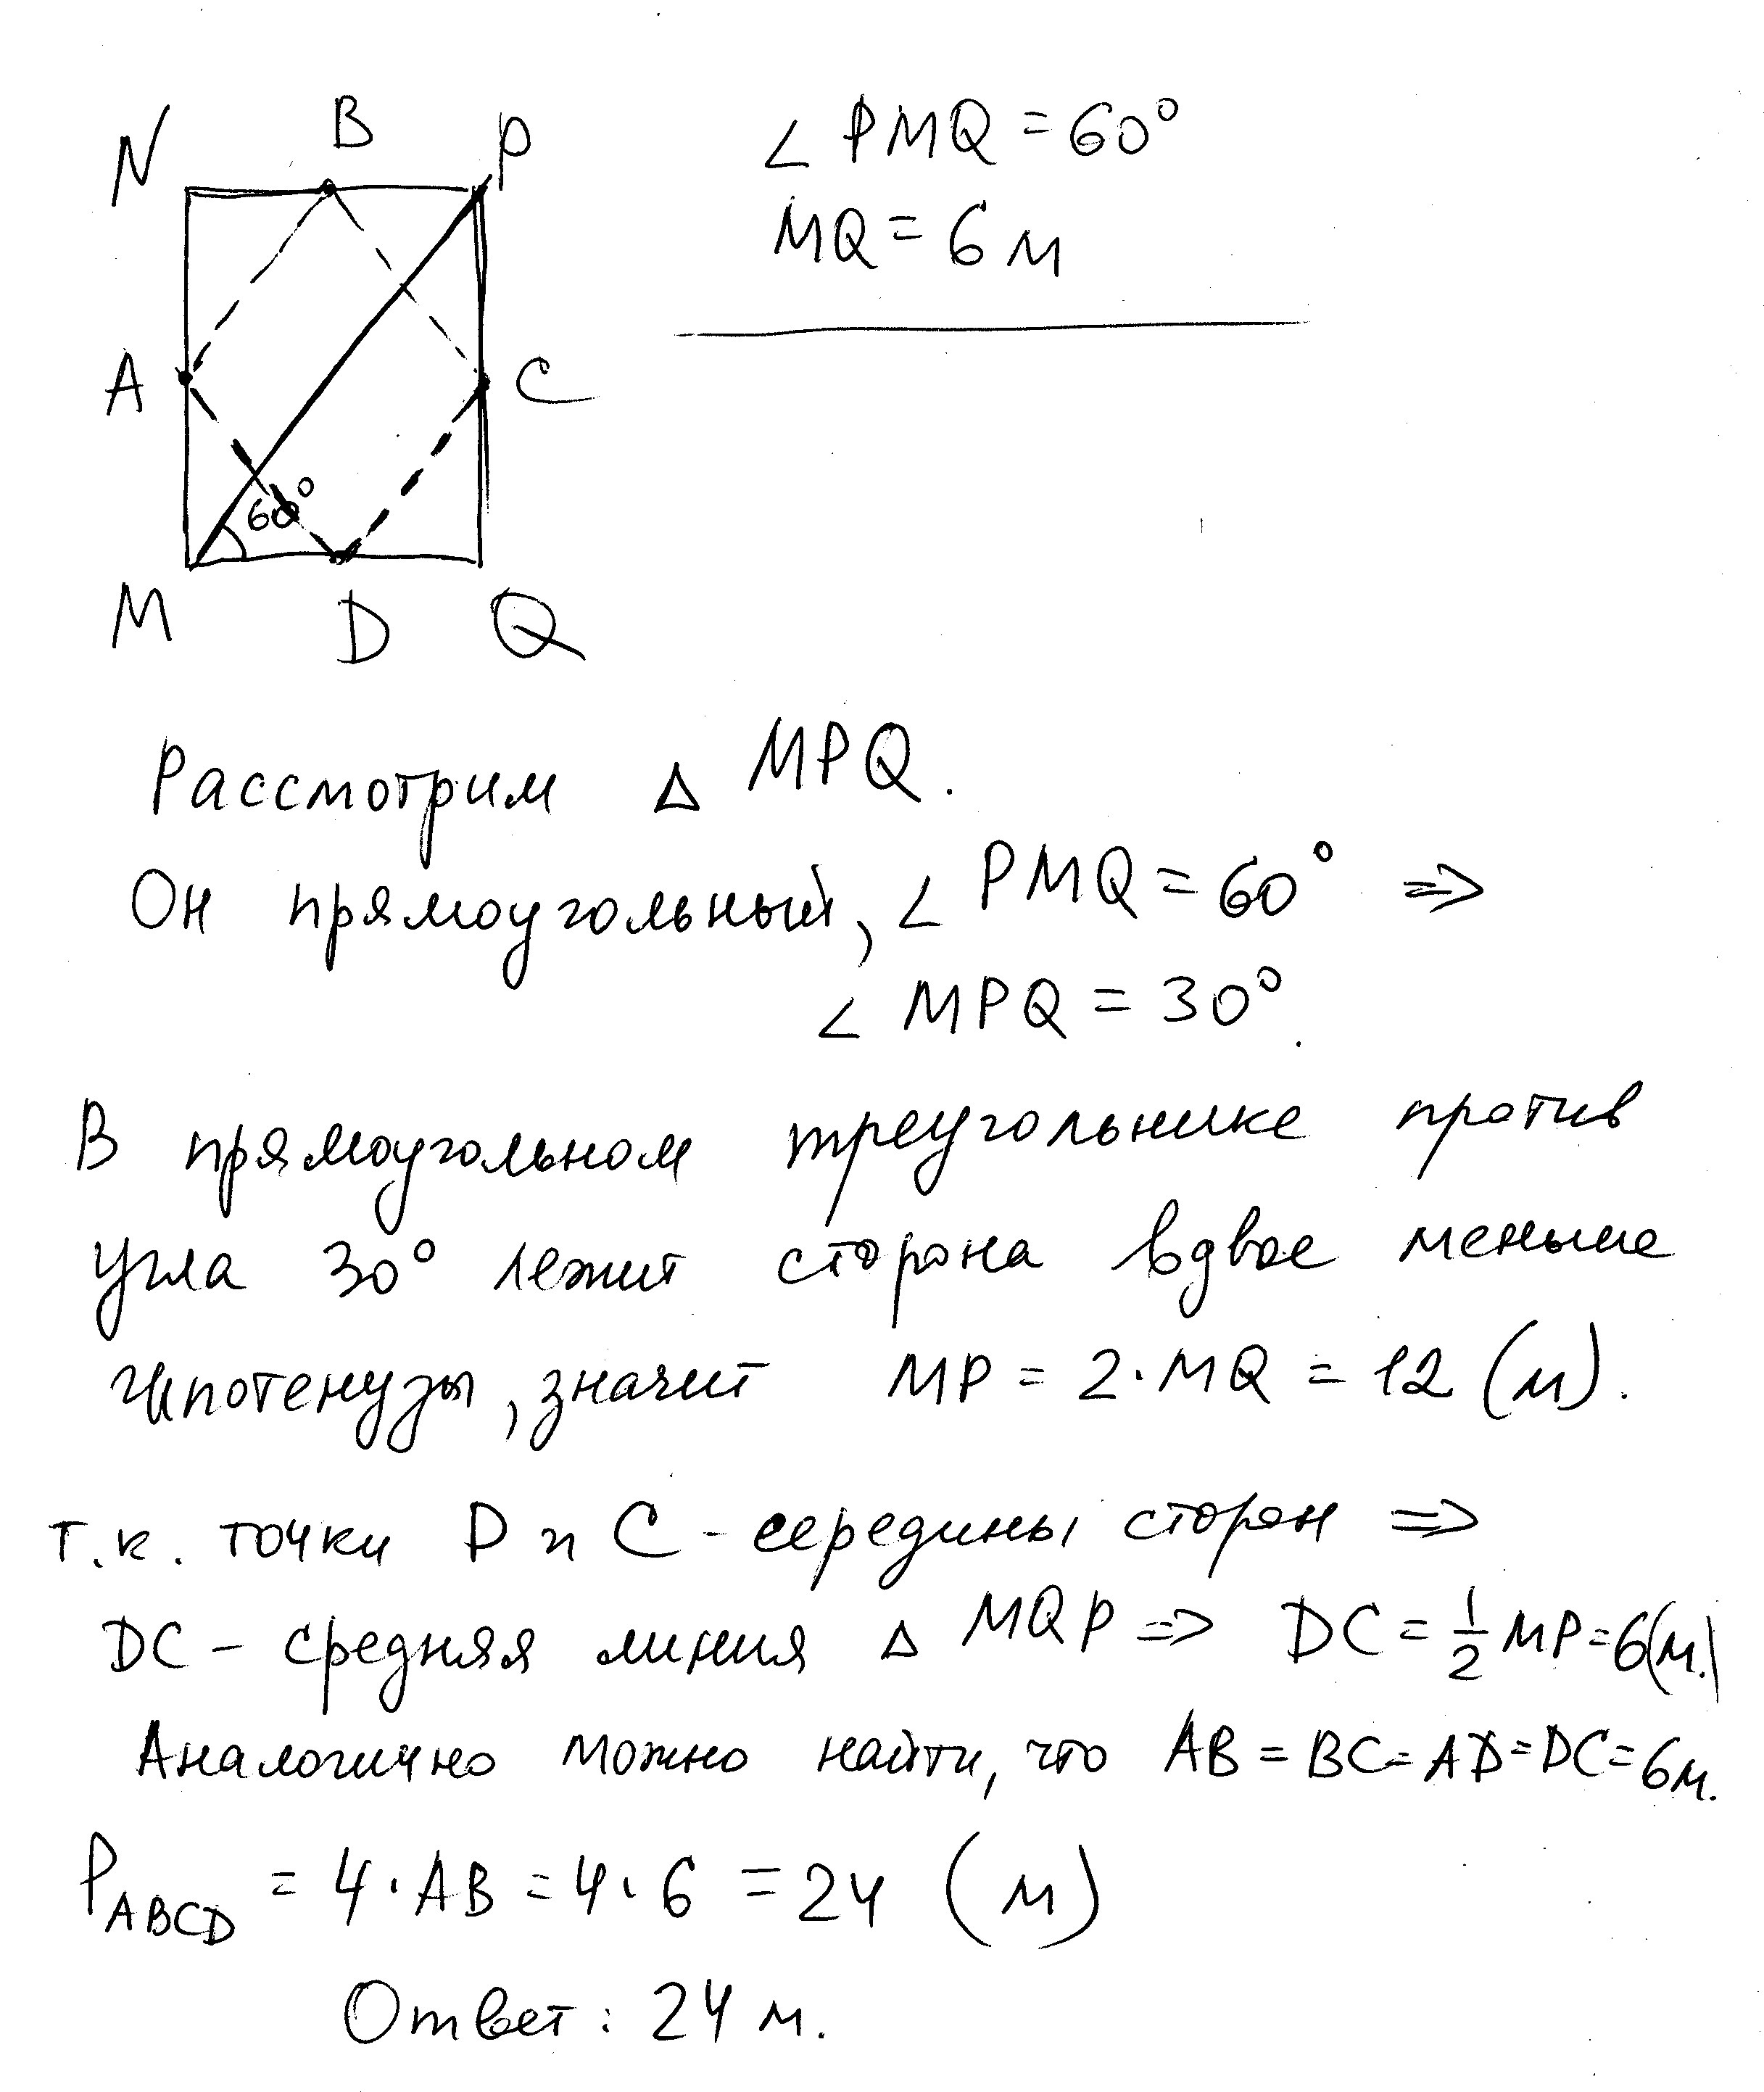 N B P
∠ PMQ = 60°
MQ = 6 м
A C
60°
M D Q
Рассмотрим △ MPQ.
Он прямоугольный, ∠ PMQ = 60° ⇒
∠ MPQ = 30°.
В прямоугольном треугольнике против
угла 30° лежит сторона вдвое меньше
гипотенузы, значит MP = 2·MQ = 12 (м).
т.к. точки D и C - середины сторон ⇒
DC - средняя линия △ MQP ⇒ DC = 1/2 MP = 6(м.)
Аналогично можно найти, что AB = BC = AD = DC = 6м.
P_ABCD = 4·AB = 4·6 = 24 (м)
Ответ: 24 м.